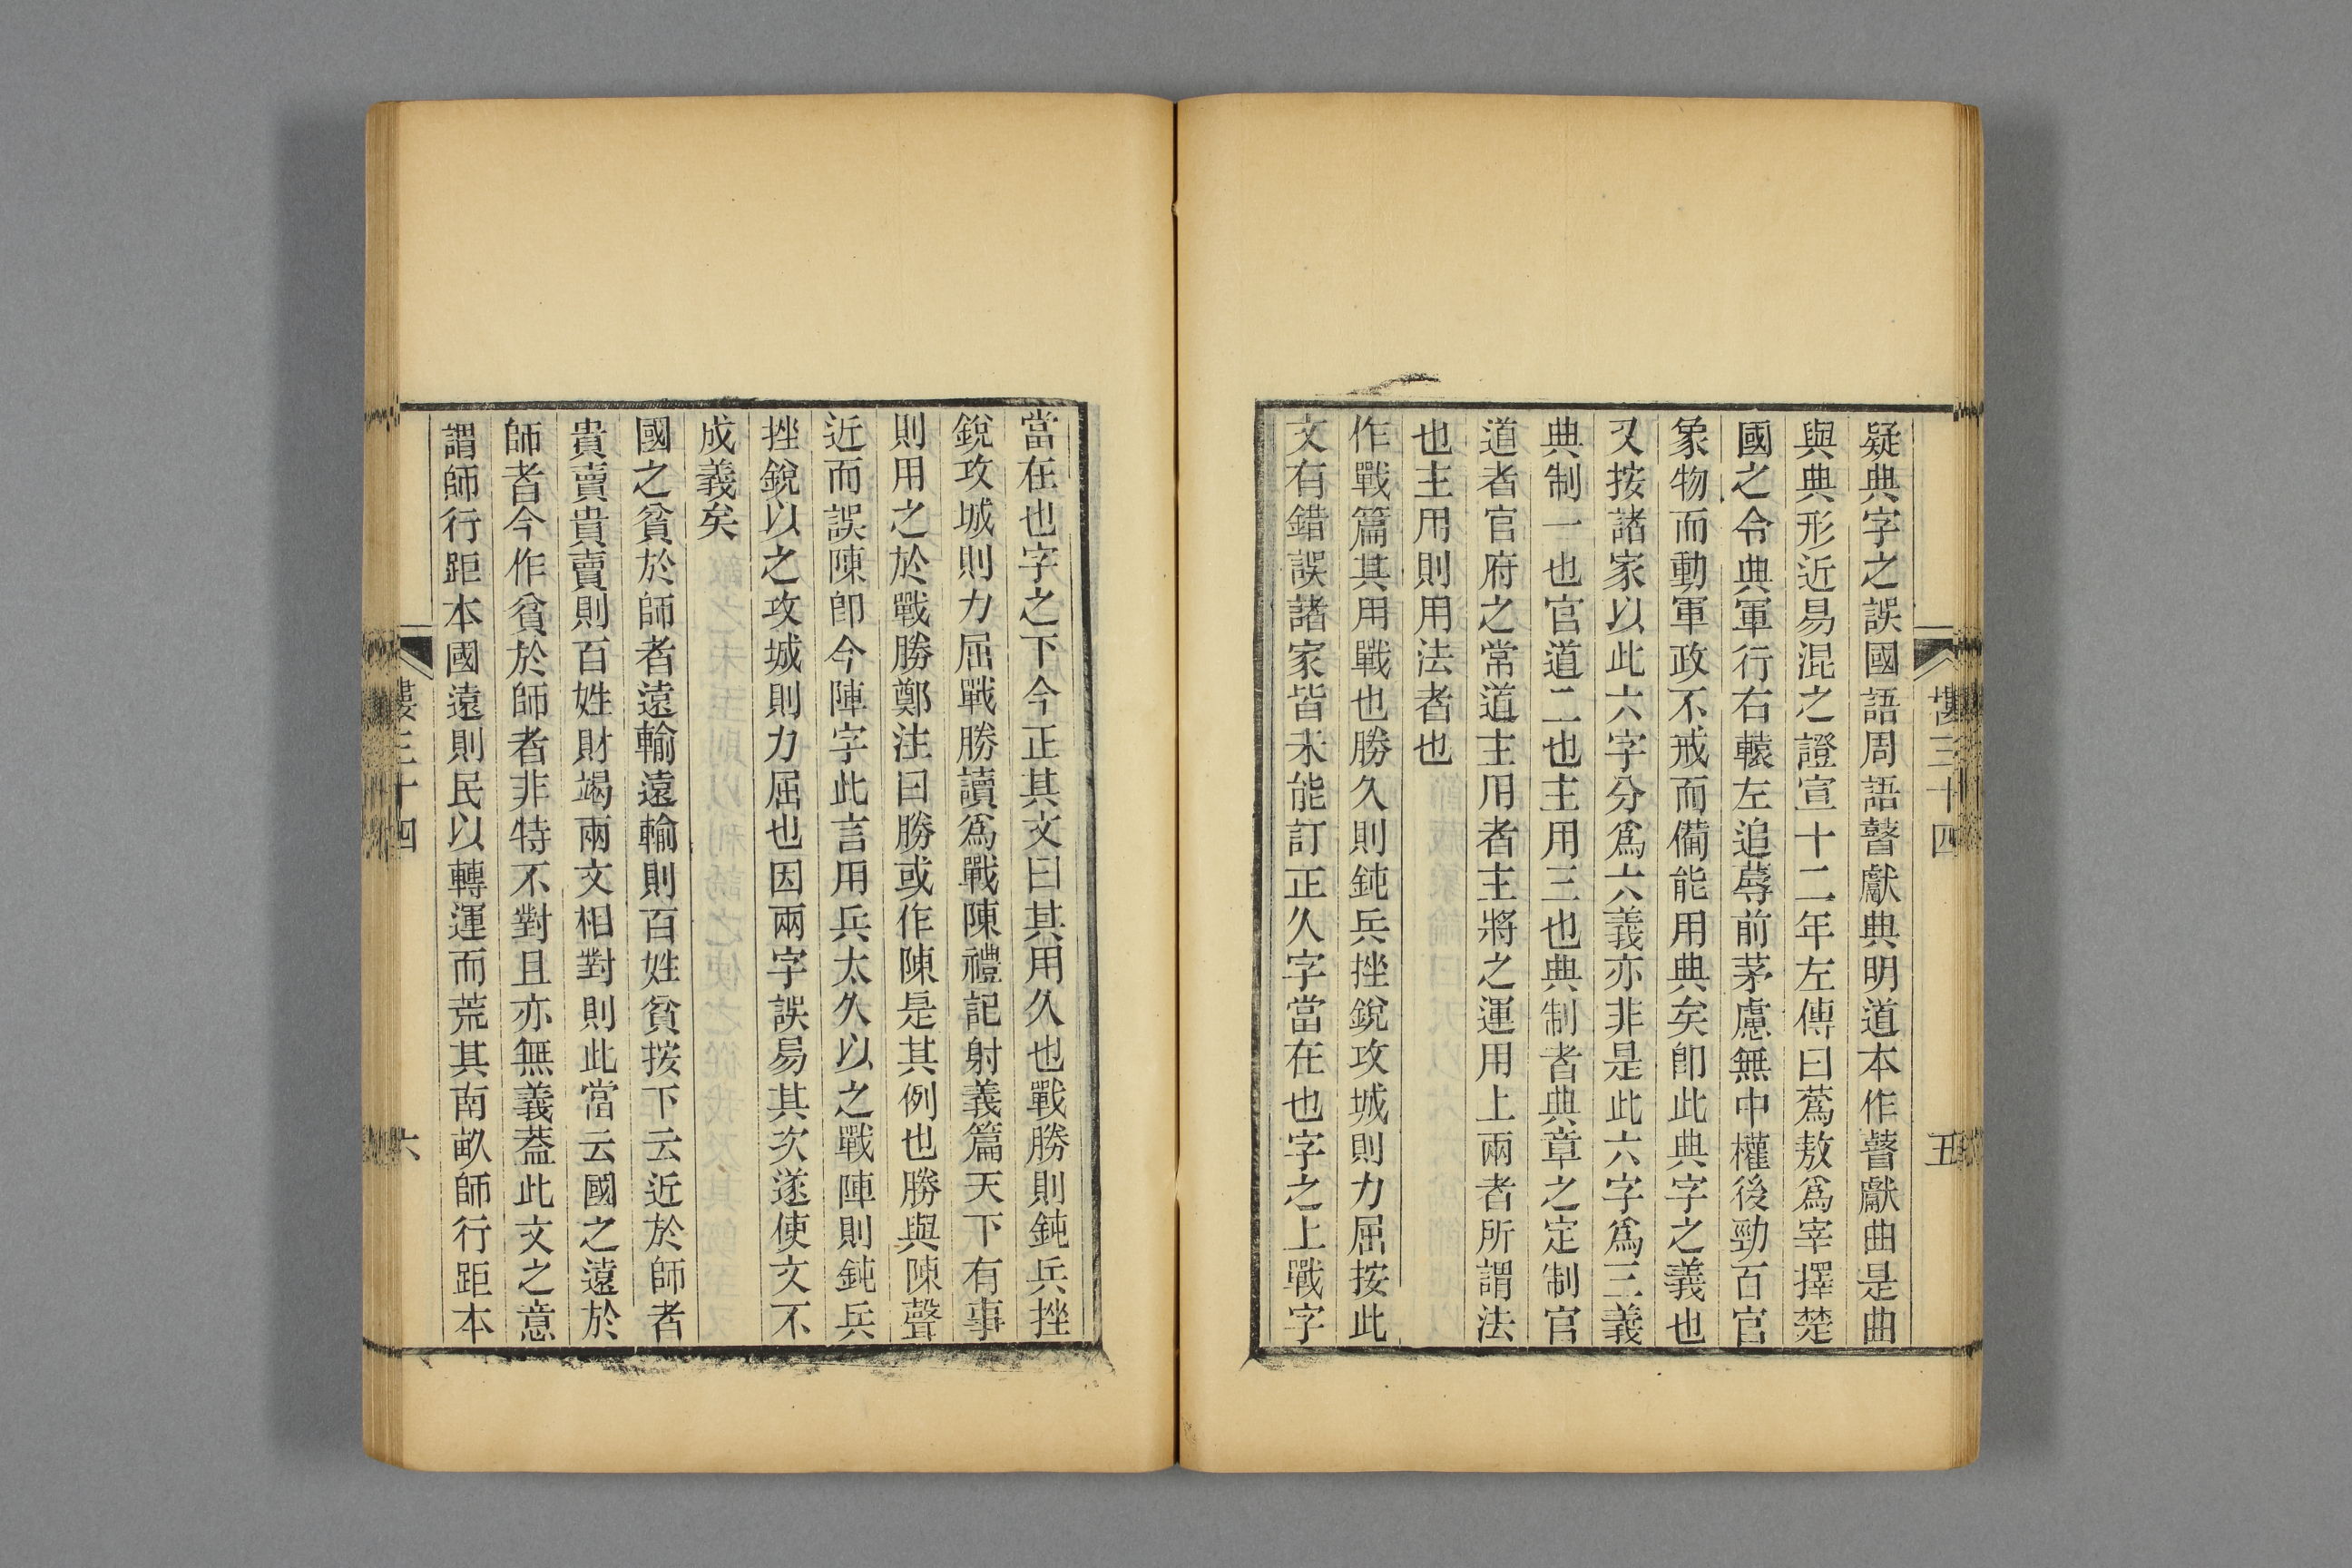 疑典字之誤國語周語瞽獻典明道本作瞽獻曲是曲
與典形近易混之證宣十二年左傳曰蔿敖爲宰擇楚
國之令典軍行右轅左追蓐前茅慮無中權後勁百官
象物而動軍政不戒而備能用典矣卽此典字之義也
又按諸家以此六字分爲六義亦非是此六字爲三義
典制一也官道二也主用三也典制者典章之定制官
道者官府之常道主用者主將之運用上兩者所謂法
也主用則用法者也
作戰篇其用戰也勝久則鈍兵挫銳攻城則力屈按此
文有錯誤諸家皆未能訂正久字當在也字之上戰字
三十四
五
當在也字之下今正其文曰其用久也戰勝則鈍兵挫
銳攻城則力屈戰勝讀爲戰陳禮記射義篇天下有事
則用之於戰勝鄭注曰勝或作陳是其例也勝與陳聲
近而誤陳卽今陣字此言用兵太久以之戰陣則鈍兵
挫銳以之攻城則力屈也因兩字誤易其次遂使文不
成義矣
國之貧於師者遠輸遠輸則百姓貧按下云近於師者
貴賣貴賣則百姓財竭兩文相對則此當云國之遠於
師者今作貧於師者非特不對且亦無義葢此文之意
謂師行距本國遠則民以轉運而荒其南畝師行距本
三十四
六